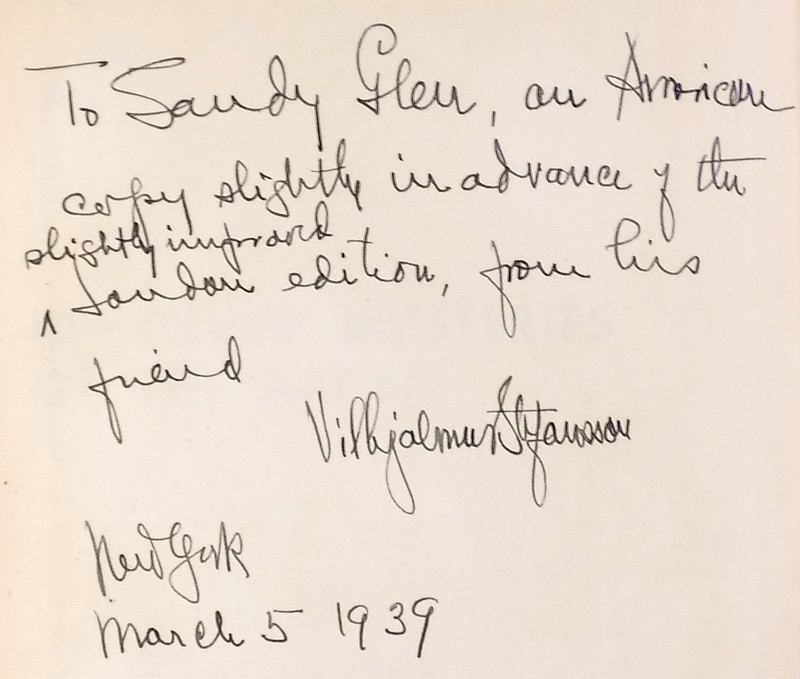 To Sandy Glen, an American
copy slightly in advance of the
slightly improved
^ London edition, from his
friend
Vilhjalmur Stefansson
New York
March 5 1939